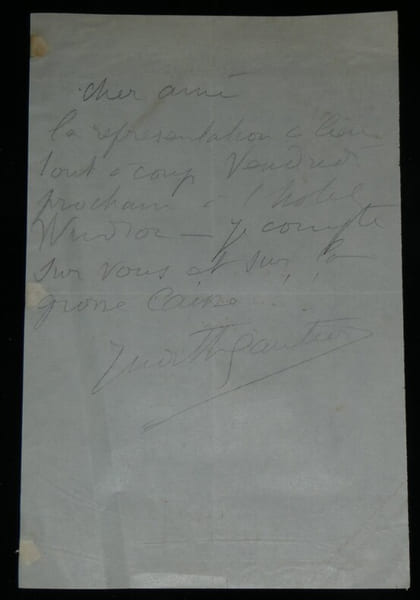 cher ami
la représentation a lieu
tout à coup Vendredi
prochain à l'hotel
Windsor — je compte
sur vous et sur la
grosse Caisse...!
Judith Gautier